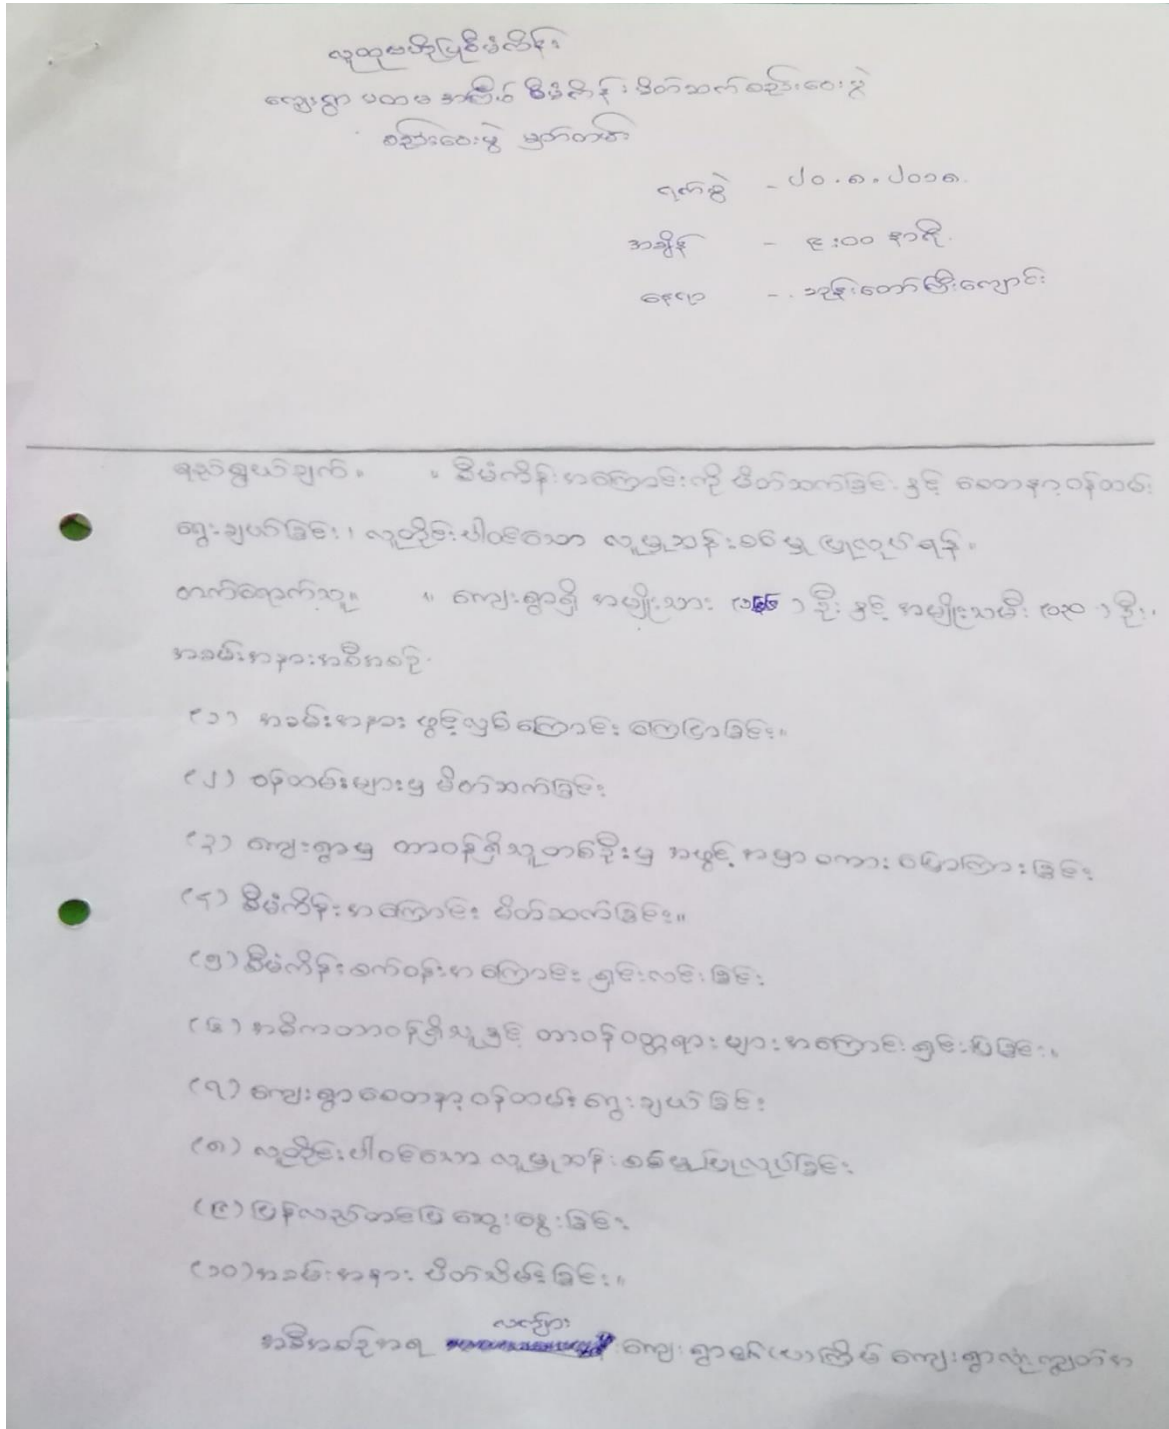 လူထုဗဟိုပြုစီမံကိန်း
ကျေးရွာ ပထမ အကြိမ် စီမံကိန်း မိတ်ဆက်စည်းဝေးပွဲ
စည်းဝေးပွဲ မှတ်တမ်း
ရက်စွဲ - ၂၀.၈.၂၀၁၈.
အချိန် - ၉:၀၀ နာရီ.
နေရာ - ဘုန်းတော်ကြီးကျောင်း
ရည်ရွယ်ချက်။ ။ စီမံကိန်းအကြောင်းကို မိတ်ဆက်ခြင်း နှင့် စေတနာ့ဝန်ထမ်း
ရွေးချယ်ခြင်း၊ လူတိုင်းပါဝင်သော လူမှုဆန်းစစ်မှု ပြုလုပ်ရန်။
တက်ရောက်သူ။ ။ ကျေးရွာရှိ အမျိုးသား ( ) ဦး နှင့် အမျိုးသမီး (၁၃၀) ဦး.
အခမ်းအနားအစီအစဉ်.
(၁) အခမ်းအနား ဖွင့်လှစ်ကြောင်း ကြေငြာခြင်း။
(၂) ဝန်ထမ်းများမှ မိတ်ဆက်ခြင်း
(၃) ကျေးရွာမှ တာဝန်ရှိသူတစ်ဦးမှ အဖွင့် အမှာ စကား ပြောကြားခြင်း
(၄) စီမံကိန်းအကြောင်း မိတ်ဆက်ခြင်း။
(၅) စီမံကိန်းစက်ဝန်းအကြောင်း ရှင်းလင်းခြင်း
(၆) အဓိကတာဝန်ရှိသူနှင့် တာဝန်ဝတ္တရားများအကြောင်း ရှင်းပြခြင်း။
(၇) ကျေးရွာစေတနာ့ဝန်ထမ်း ရွေးချယ်ခြင်း
(၈) လူတိုင်းပါဝင်သော လူမှုဆန်းစစ်မှုပြုလုပ်ခြင်း
(၉) ပြန်လည်တင်ပြ ဆွေးနွေးခြင်း
(၁၀) အခမ်းအနား ပိတ်သိမ်းခြင်း။
အစီအစဉ်အရ ကျေးရွာ ကျေးရွာလုံးကျွတ်အ